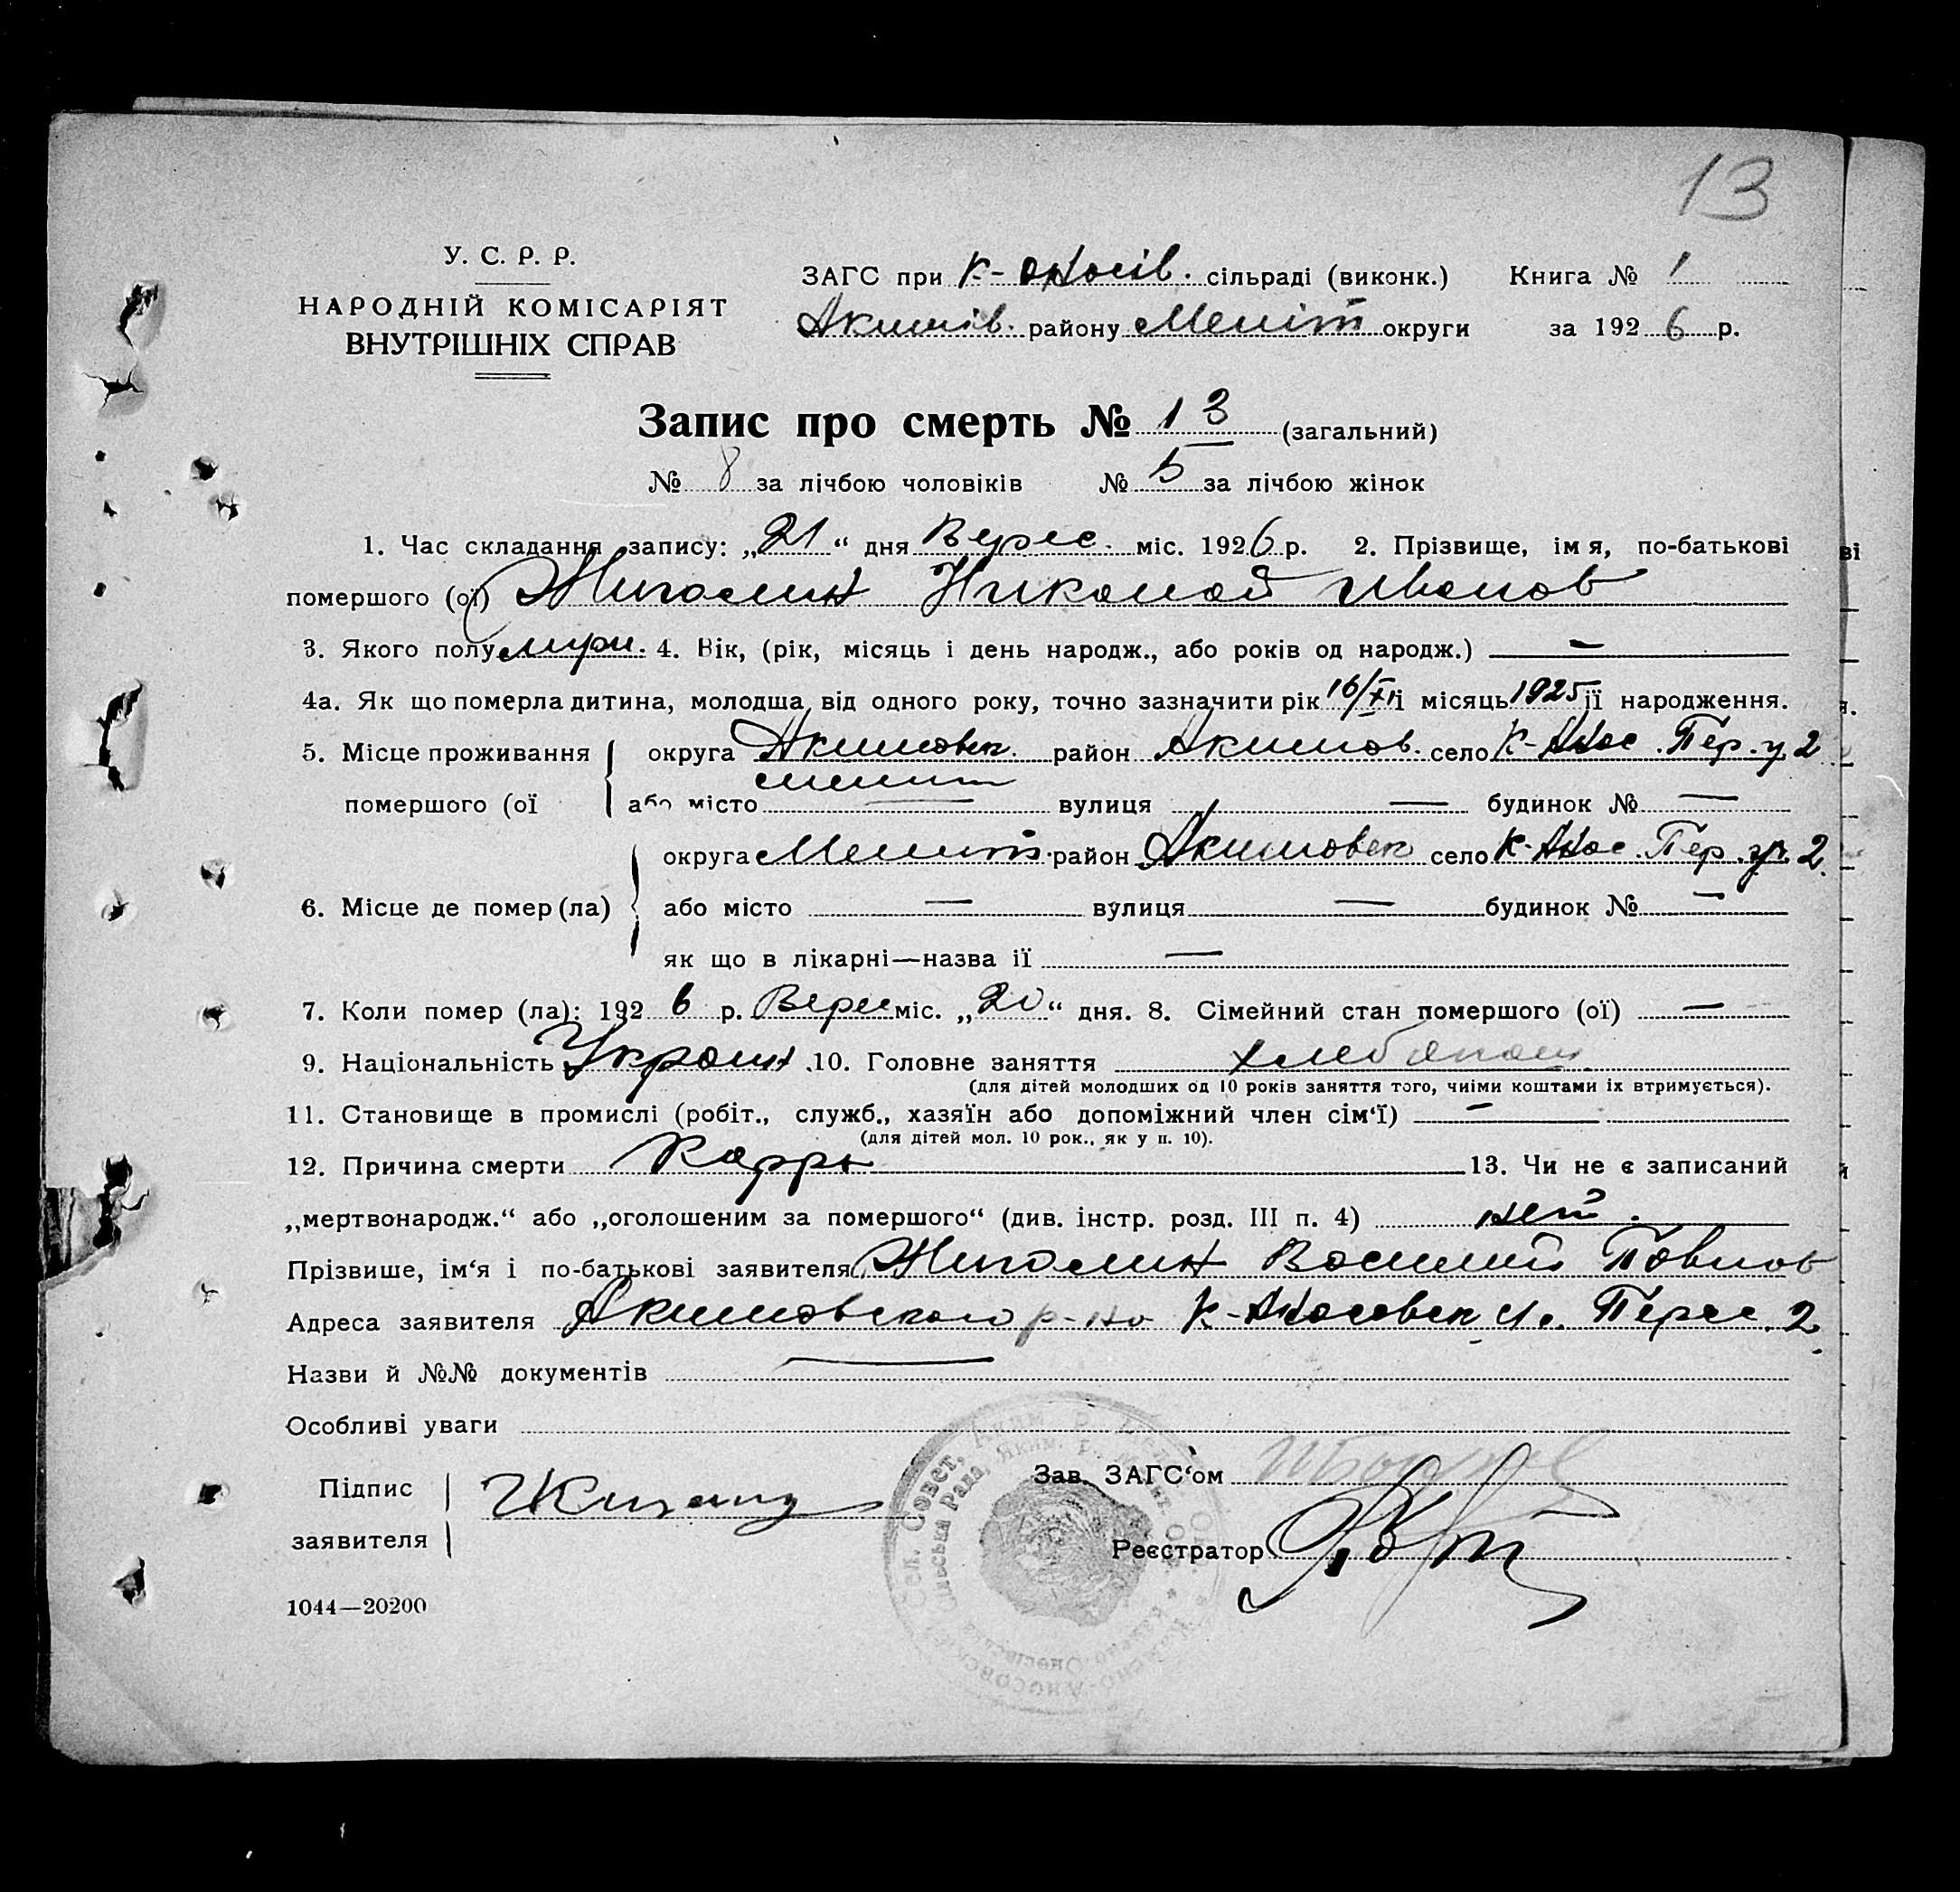 13
У. С. Р. Р.
НАРОДНІЙ КОМІСАРІЯТ
ВНУТРІШНІХ СПРАВ
ЗАГС при К- сільраді (виконк.) Книга № 1
Акимів. району Меліт округи за 1926 р.
Запис про смерть № 13 (загальний)
№ 8 за лічбою чоловіків № 5 за лічбою жінок
1. Час складання запису: „21“ дня Верес. міс. 1926 р. 2. Прізвище, ім я, по-батькові
помершого (ої) Жиголин Николай Иванов
3. Якого полу мужч. 4. Вік, (рік, місяць і день народж., або років од народж.) —
4а. Як що померла дитина, молодша від одного року, точно зазначити рік 16/XII і місяць 1925 її народження.
5. Місце проживання округа Акимовск. район Акимов. село К-Анос. Пер. у. 2
мелит
помершого (ої або місто — вулиця — будинок № —
округа Мелит. район Акимовск село К-Анос. Пер. 2.
6. Місце де помер (ла) або місто — вулиця — будинок № —
як що в лікарні—назва ії —
7. Коли помер (ла): 1926 р. Верес міс. „20“ дня. 8. Сімейний стан помершого (ої) —
9. Національність Украин. 10. Головне заняття хлебопаш.
(для дітей молодших од 10 років заняття того, чиїми коштами їх втримується).
11. Становище в промислі (робіт., служб., хазяїн або допоміжний член сім‘ї) —
(для дітей мол. 10 рок., як у п. 10).
12. Причина смерти 13. Чи не є записаний
„мертвонародж.“ або „оголошеним за помершого“ (див. інстр. розд. III п. 4) нет.
Прізвише, ім‘я і по-батькові заявителя Жиголин Василий Павлов
Адреса заявителя Акимовского р-на К-Аносовск с. Перес. 2
Назви й №№ документів —
Особливі уваги
Підпис
заявителя
Зав. ЗАГС‘ом
Реєстратор
1044—20200